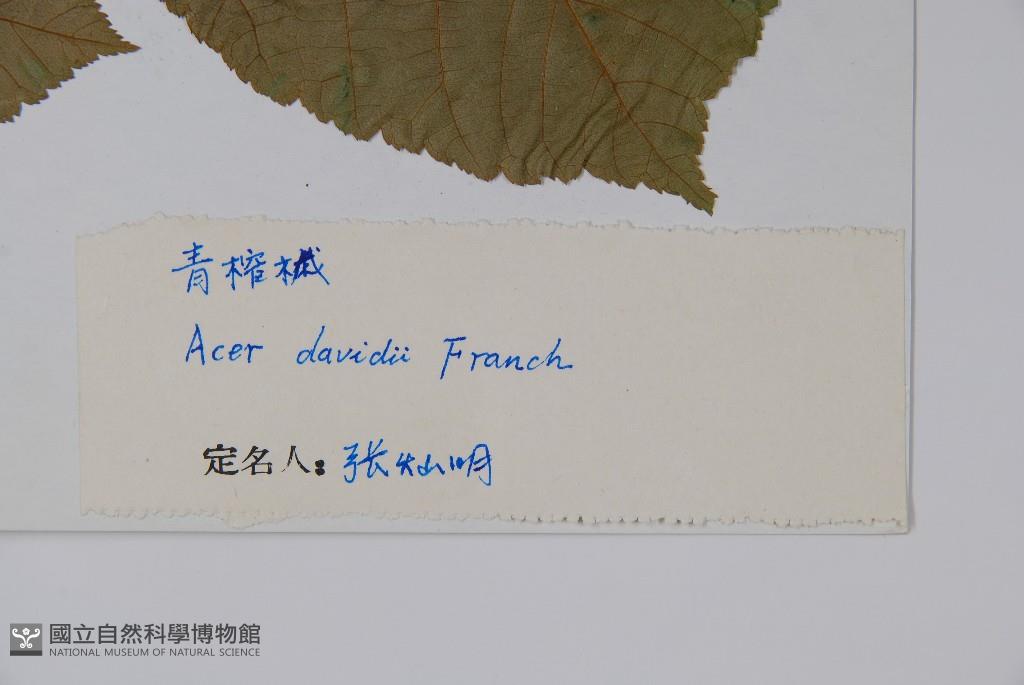 青榨槭
Acer davidii Franch
定名人：张灿明
國立自然科學博物館
NATIONAL MUSEUM OF NATURAL SCIENCE